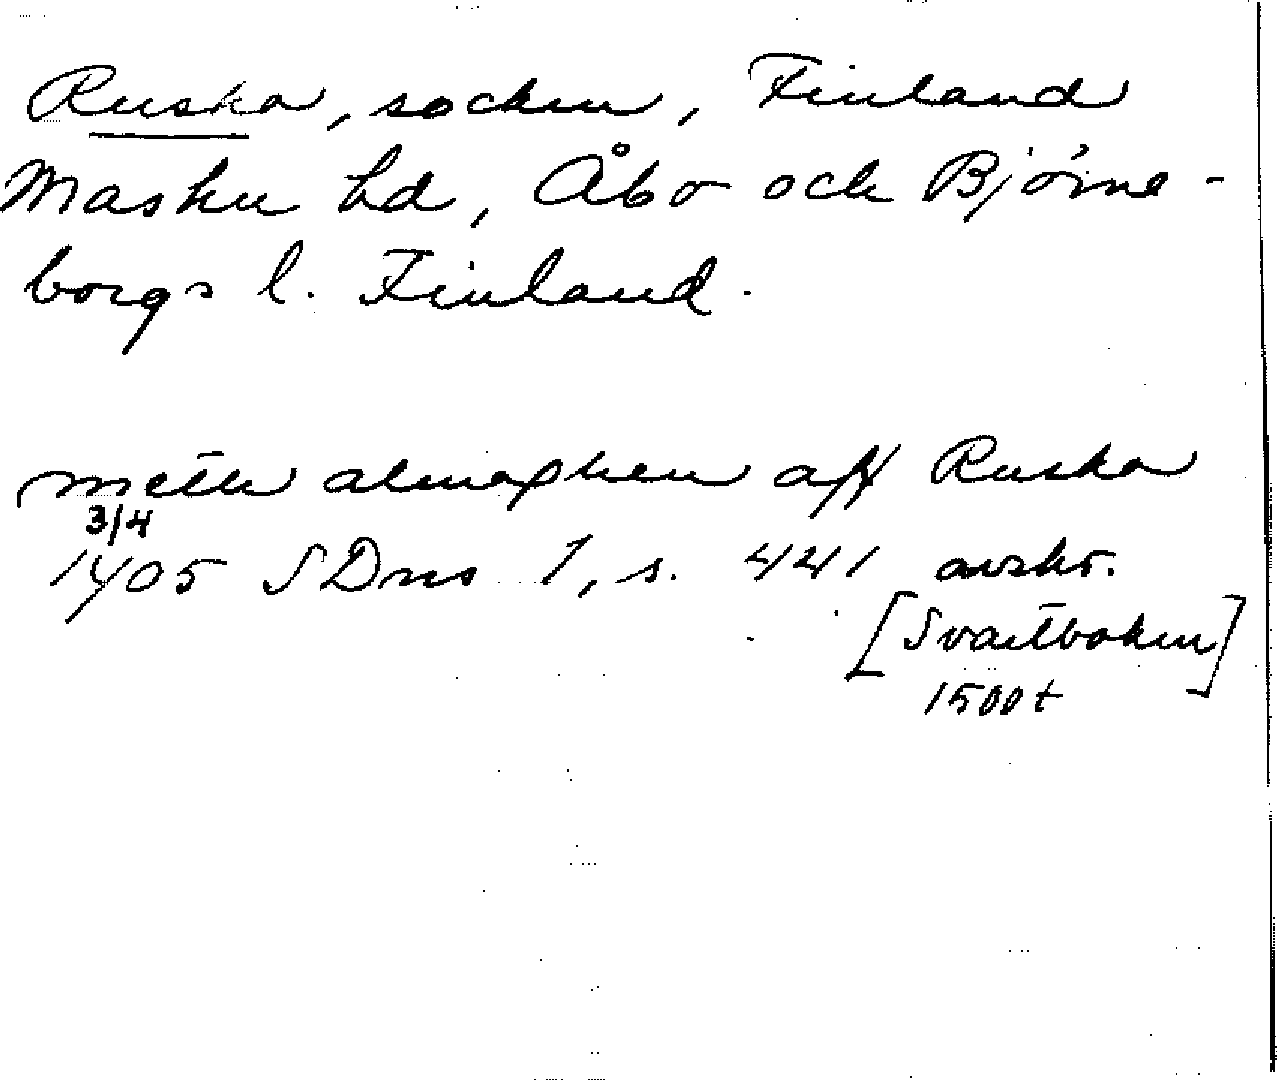 Rusko, socken, Finland
Masku hd, Åbo och Björne-
borgs l. Finland.
meth almoghen aff Rusko
3/4
1405 SDns 1, s. 441 avskr.
[Svartboken]
1500t